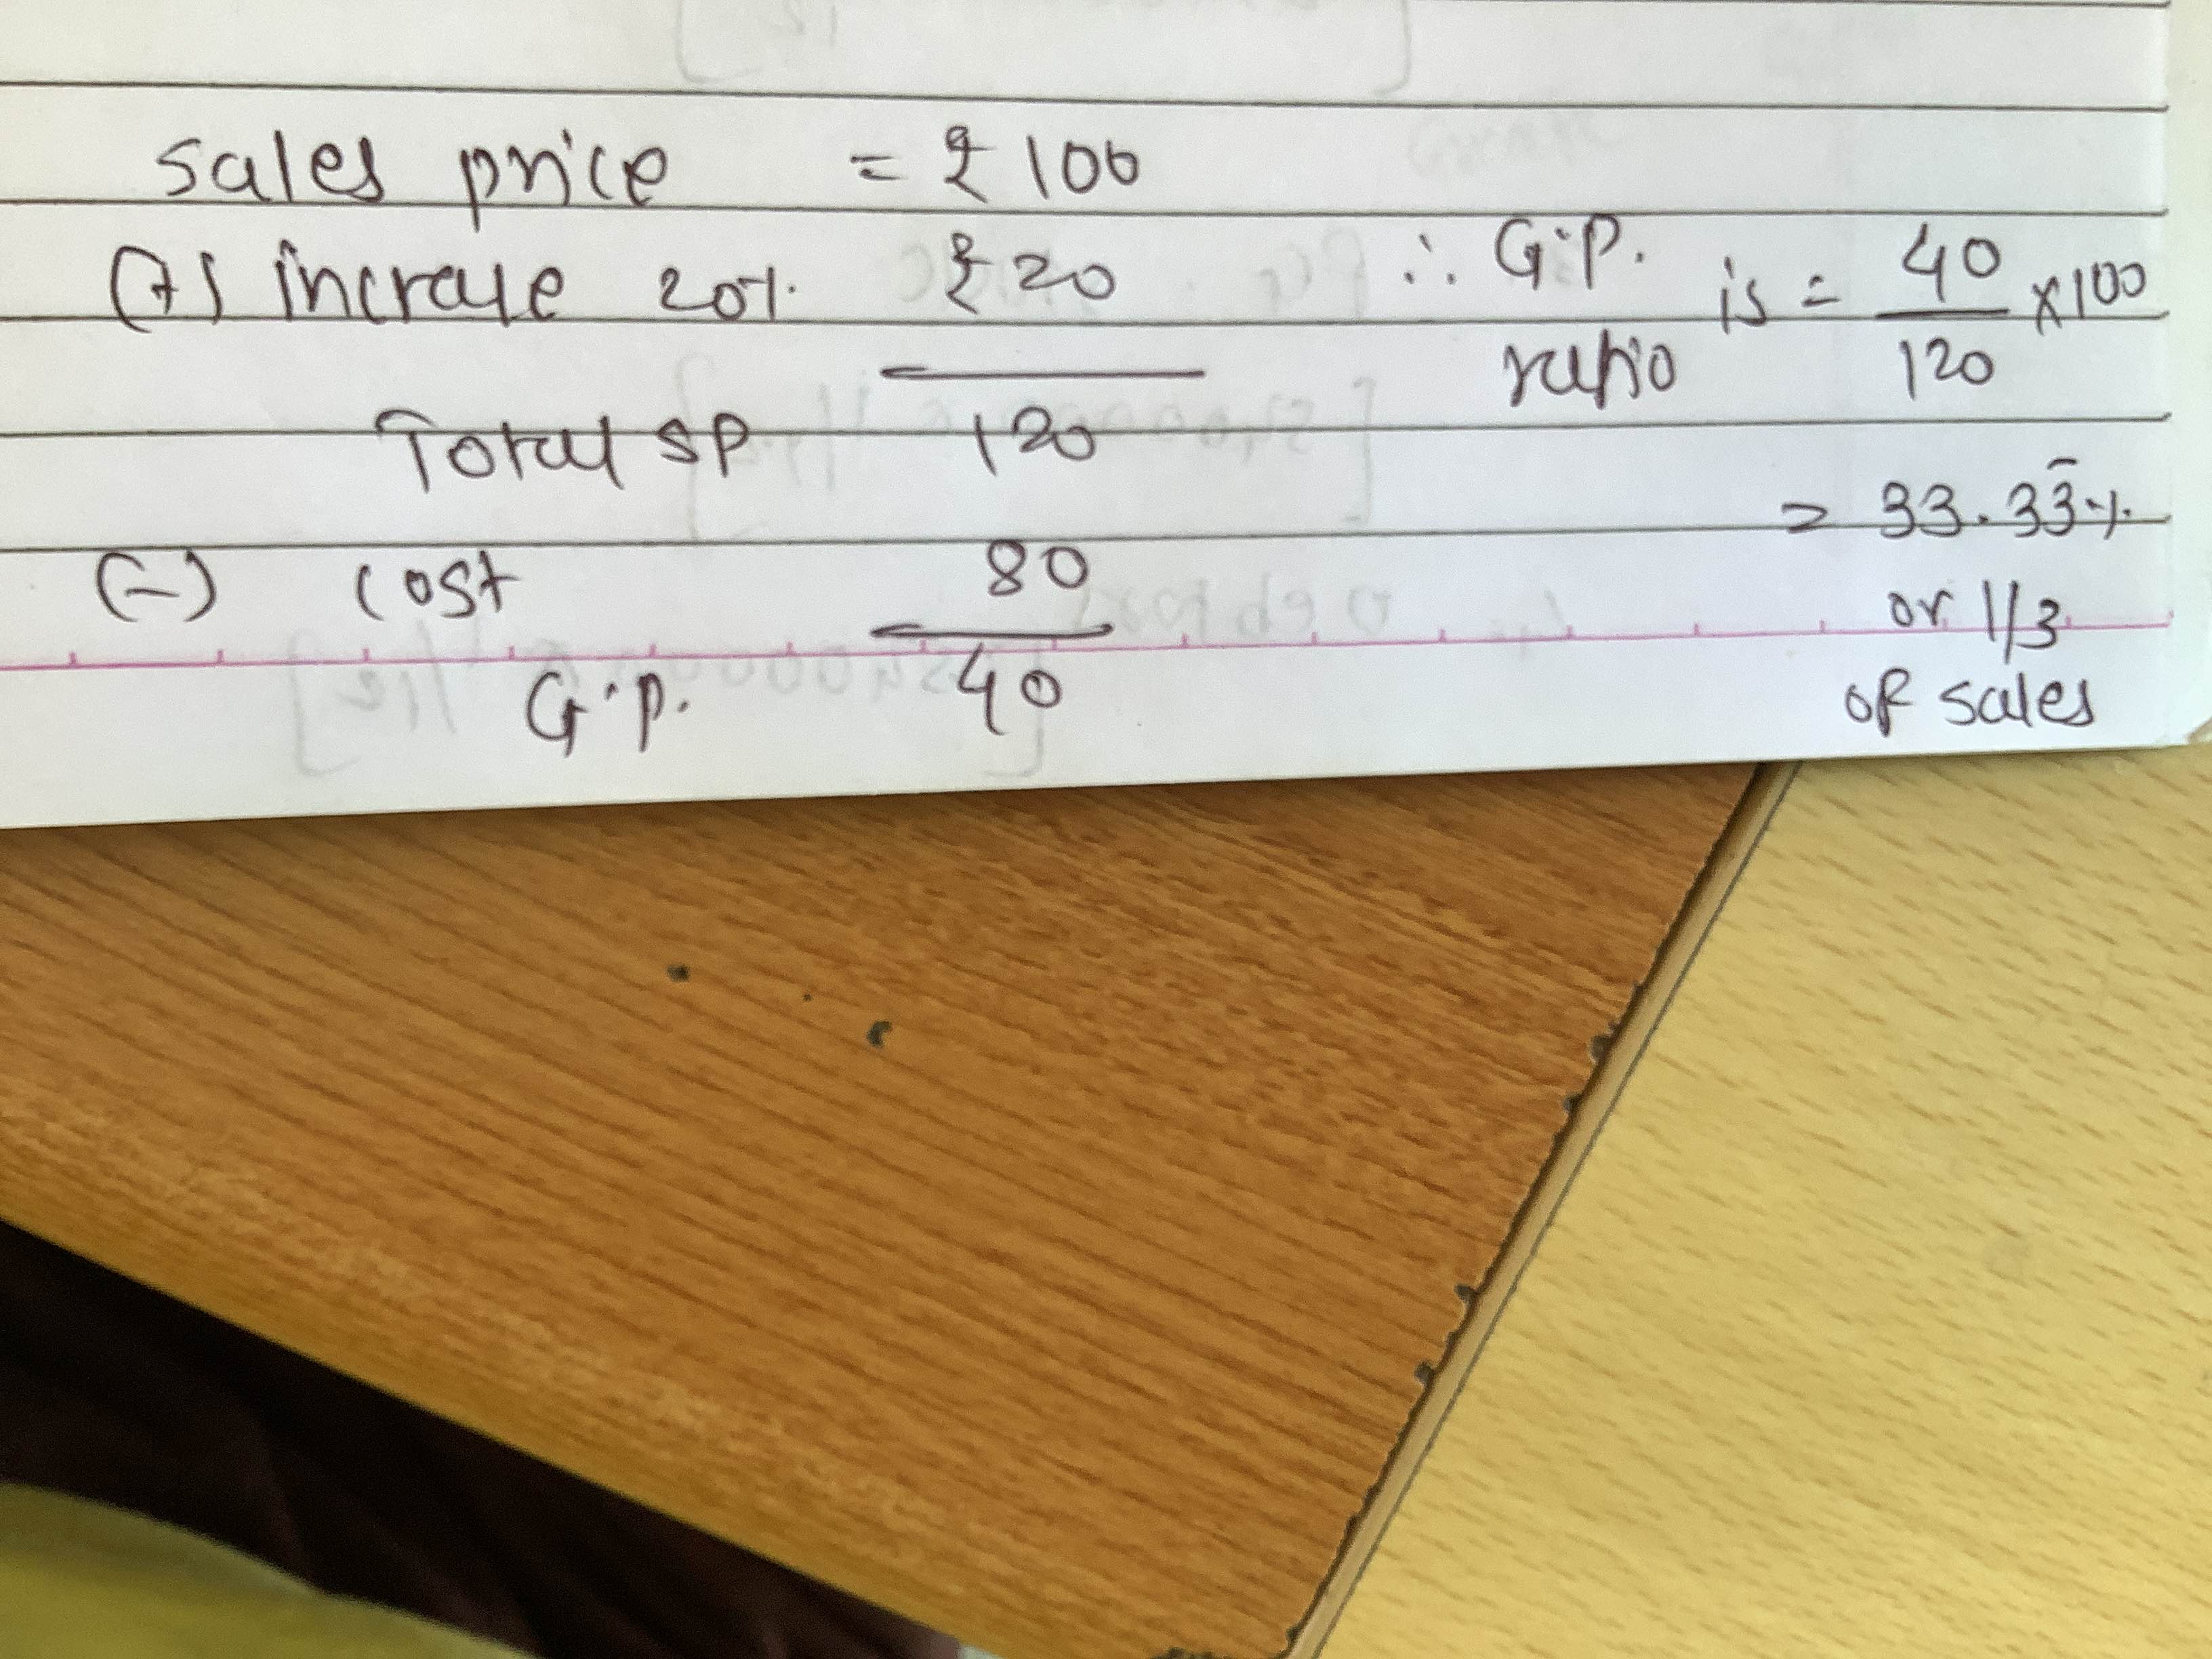 sales price = ₹ 100
(+) increase 20% ₹ 20
Total SP 120
(-) cost 80
G.P. 40
∴ G.P. ratio is = 40/120 x100
= 33.33̅%
or 1/3
of sales